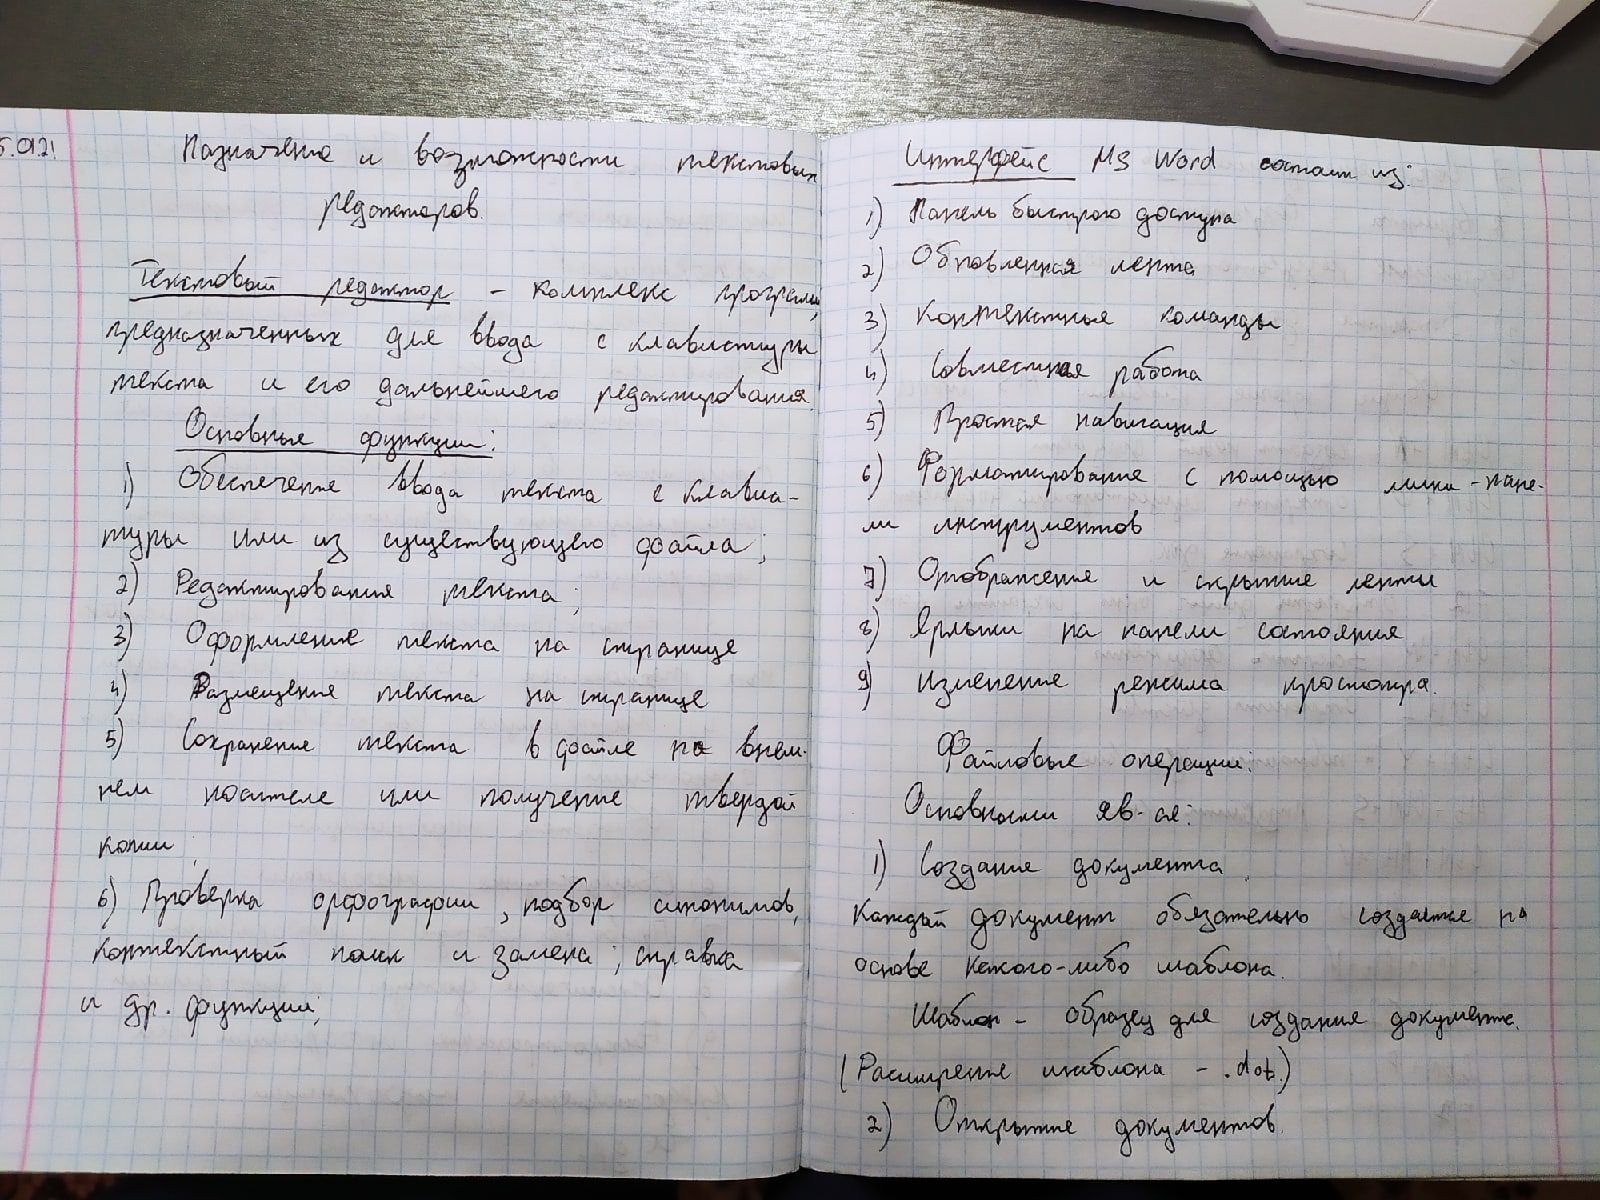 5.01.21
Назначение и возможности текстовых
редакторов.
Текстовый редактор - комплекс программ,
предназначенных для ввода с клавиатуры
текста и его дальнейшего редактирования.
Основные функции:
1) Обеспечение ввода текста с клавиа-
туры или из существующего файла;
2) Редактирования текста;
3) Оформление текста на странице
4) Размещение текста на странице
5) Сохранение текста в файле на внеш-
нем носителе или получение твердой
копии;
6) Проверка орфографии, подбор синонимов,
контекстный поиск и замена; справка
и др. функции;
Интерфейс MS Word состоит из:
1) Панель быстрого доступа
2) Обновленная лента
3) Контекстные команды
4) Совместная работа
5) Простая навигация
6) Форматирование с помощью мини-пане-
ли инструментов
7) Отображение и скрытие ленты
8) Ярлыки на панели состояния
9) Изменение режима просмотра.
Файловые операции:
Основными яв-ся:
1) Создание документа.
Каждый документ обязательно создается на
основе какого-либо шаблона.
Шаблон - образец для создания документа.
(Расширение шаблона - .dot.)
2) Открытие документов.